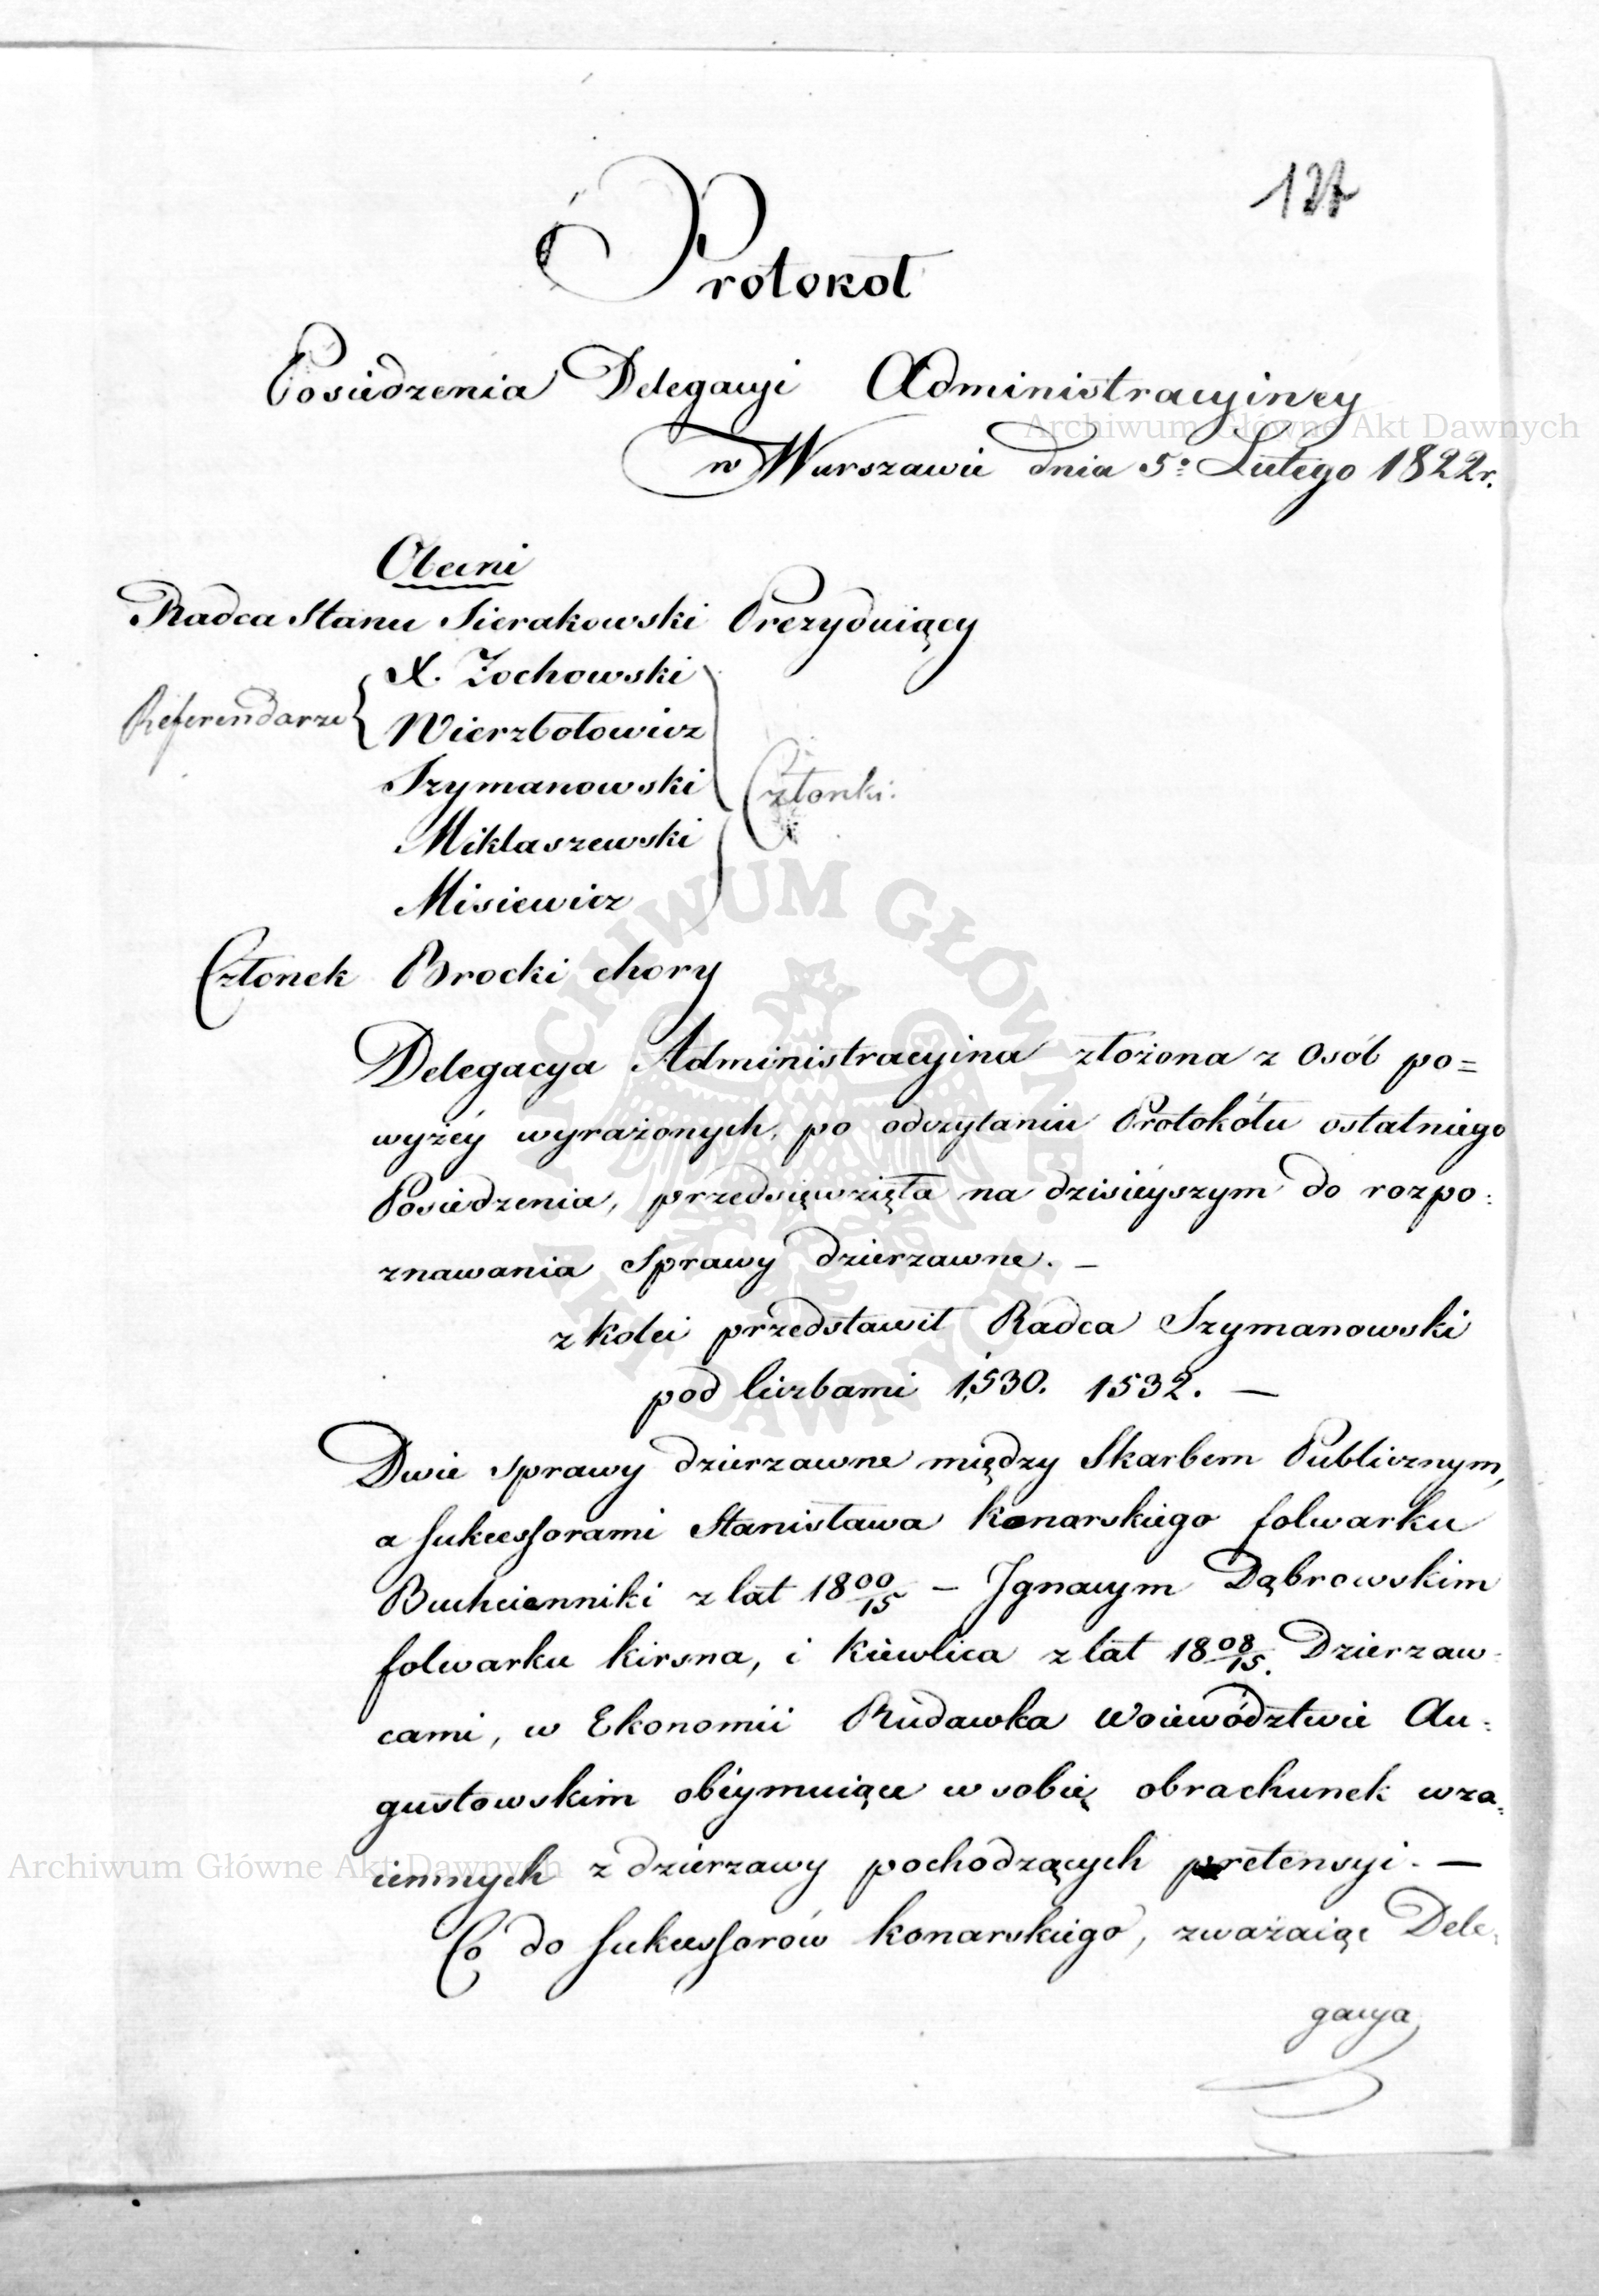 127
Protokół
Posiedzenia Delegacyi Administracyiney
w Warszawie dnia 5º Lutego 1822r.
Obecni
Radca Stanu Sierakowski Prezyduiący
Referendarze { X. Żochowski
Wierzbołowicz
Szymanowski
Miklaszewski
Misiewicz
} Członki.
Członek Brocki chory
Delegacya Administracyina złożona z Osób po=
wyżéy wyrażonych, po odczytaniu Protokółu ostatniego
Posiedzenia, przedsięwzięła na dzisieyszym do rozpo:
znawania Sprawy dzierzawne. —
z kolei przedstawił Radca Szymanowski
pod liczbami 1530. 1532. —
Dwie sprawy dzierzawne między Skarbem Publicznym,
a sukcessorami Stanisława Konarskiego folwarku
Buchcianniki z lat 1800/15 — Ignacym Dąbrowskim
folwarku Kirsna, i Kiewlica z lat 1808/15. Dzierzaw:
cami, w Ekonomii Rudawka Woiewództwie Au:
gustowskim obéymuiące w sobie obrachunek wza:
iemnych z dzierzawy pochodzących pretensyi. —
Co do sukcessorów Konarskiego, zważaiąc Dele:
gacya
Archiwum Główne Akt Dawnych
Archiwum Główne Akt Dawnych
ARCHIWUM GŁÓWNE AKT DAWNYCH